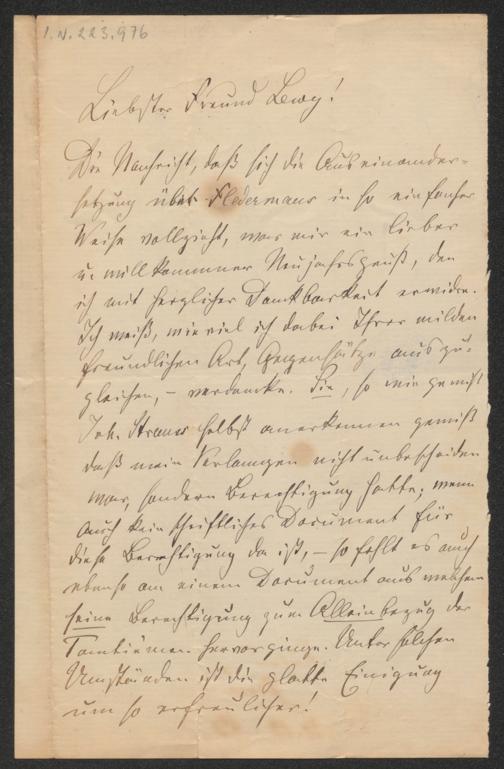 I.N. 223.976
Liebster Freund Lewy!
Die Nachricht, daß sich die Auseinander-
setzung über Fledermaus in so einfacher
Weise vollzieht, war mir ein lieber
u. willkommener Neujahrsgruß, den
ich mit herzlicher Dankbarkeit erwidre.
Ich weiß, wie viel ich dabei Ihrer milden
freundlichen Art, Gegensätze auszu-
gleichen, – verdanke. Sie, so wie gewiß
Joh. Strauss selbst anerkennen gewiß
daß mein Verlangen nicht unbescheiden
war, sondern Berechtigung hatte; wenn
auch kein schriftliches Document für
diese Berechtigung da ist, – so fehlt es auch
ebenso an einem Document aus welchem
seine Berechtigung zum Alleinbezug der
Tantièmen hervorginge. Unter solchen
Umständen ist die glatte Einigung
um so erfreulicher!